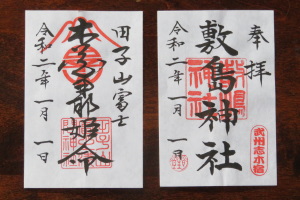 奉拝
敷島神社
令和二年一月一日
敷嶋神社
武州志木宿
田子山富士
木花開耶姫命
令和二年一月一日